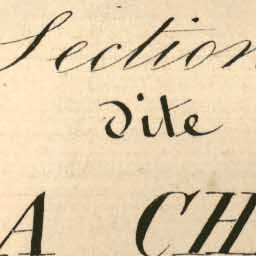 Section
dite
A CH